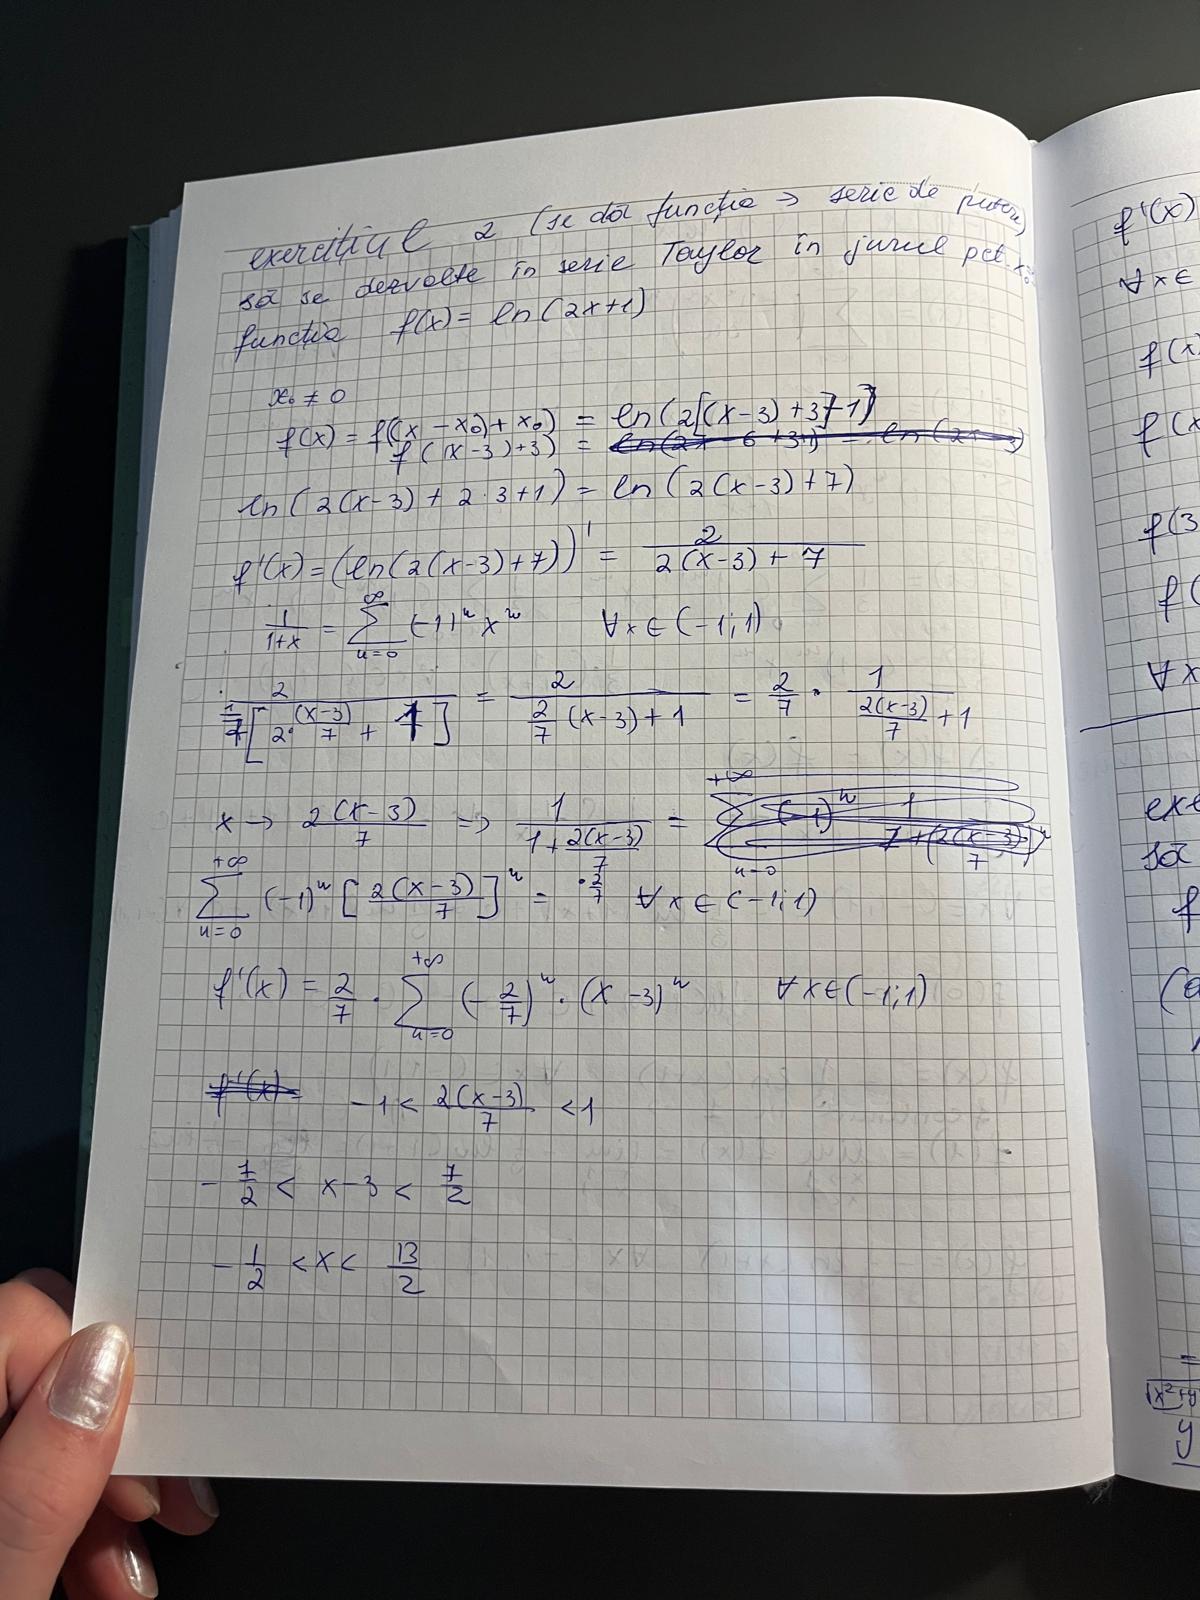 exercițiul 2 (se dă funcția → serie de puteri)
să se dezvolte în serie Taylor în jurul pct. x₀:
funcția f(x) = ln(2x+1)
x₀ ≠ 0
f(x) = f((x-x₀)+x₀) = ln(2[(x-3)+3]+1)
f((x-3)+3) =
ln(2(x-3)+2·3+1) = ln(2(x-3)+7)
f'(x) = (ln(2(x-3)+7))' = 2/(2(x-3)+7)
1/(1+x) = ∑_{n=0}^{∞} (-1)ⁿ xⁿ ∀x∈(-1;1)
2/(7[2·(x-3)/7 + 1]) = 2/(2/7 (x-3)+1) = 2/7 · 1/(2(x-3)/7 + 1)
x → 2(x-3)/7 => 1/(1+2(x-3)/7) =
∑_{n=0}^{+∞} (-1)ⁿ [2(x-3)/7]ⁿ = ·2/7 ∀x∈(-1;1)
f'(x) = 2/7 · ∑_{n=0}^{+∞} (-2/7)ⁿ · (x-3)ⁿ ∀x∈(-1;1)
-1 < 2(x-3)/7 < 1
-7/2 < x-3 < 7/2
-1/2 < x < 13/2
f'(x)
∀x∈
f(x
f(x
f(3
f(
∀x
exe
să
f
(a
=
y